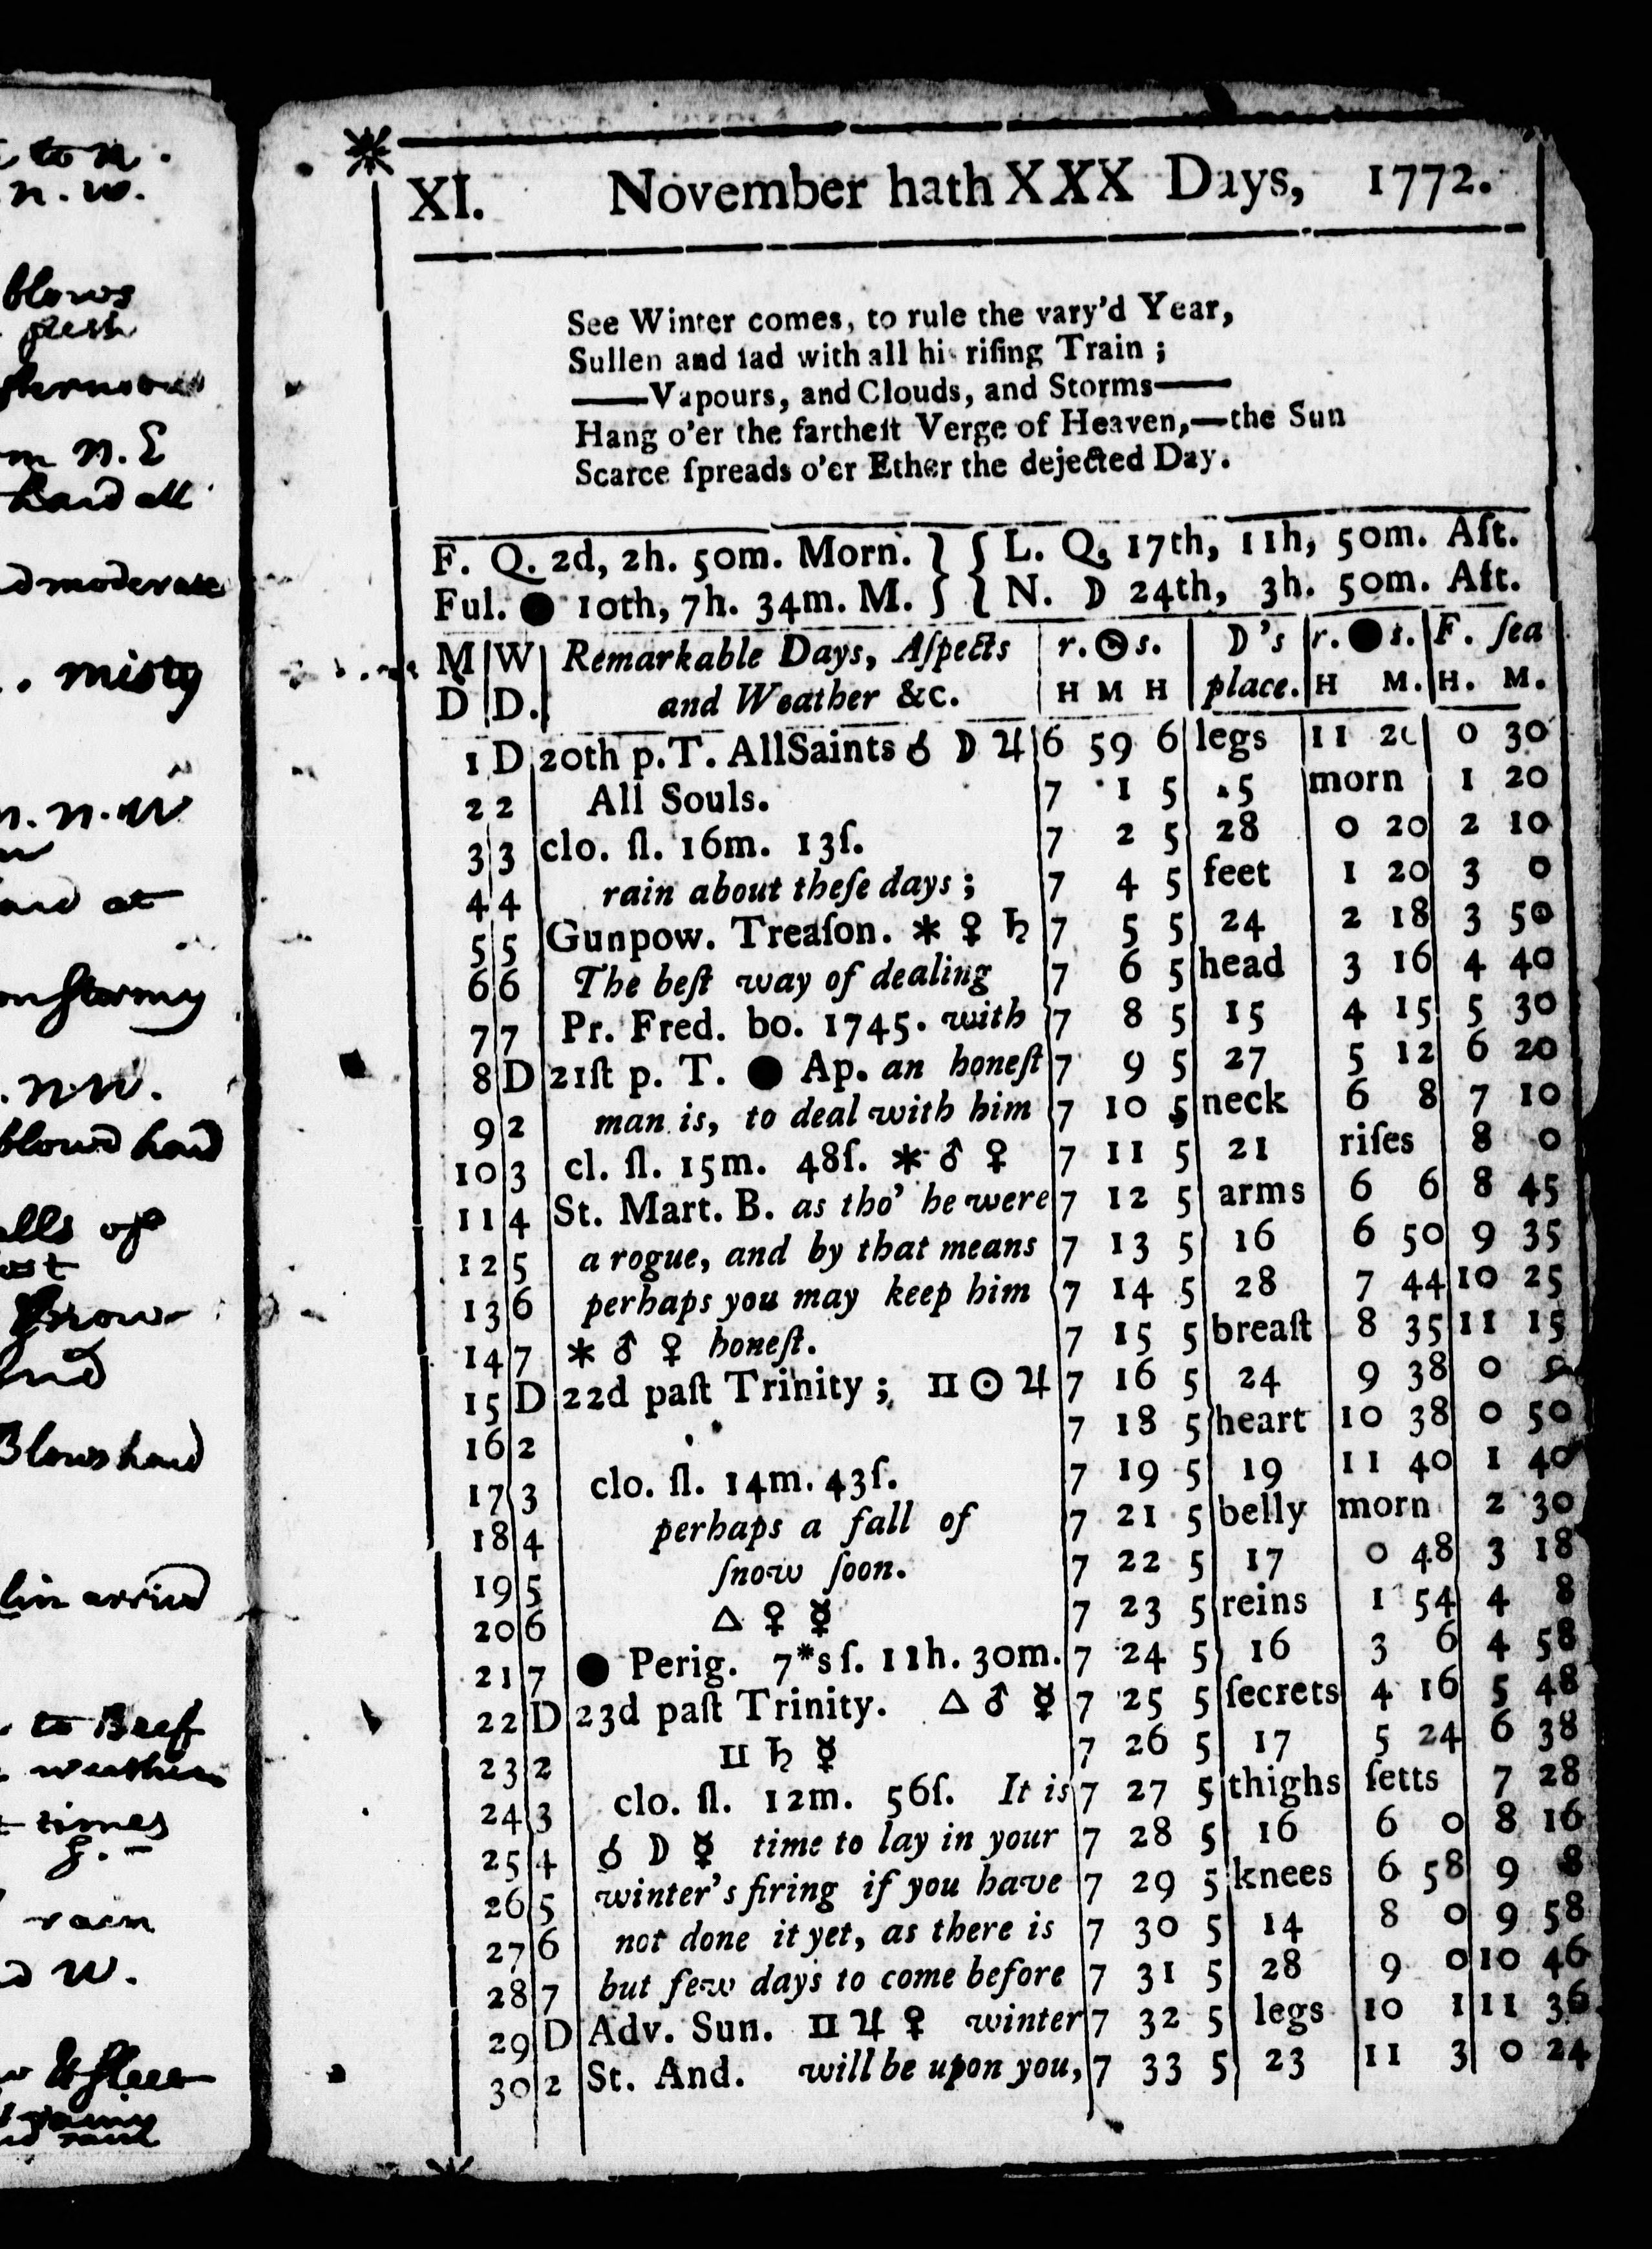 to n.
n. w.
blows
fresh
m n. E
hard all
d moderate
misty
n. n. W
hard at
stormy
n. w.
blowd hard
alls of
Blows hard
lin arrivd
to Beef
weather
times
rain
d W.
XI. November hath XXX Days, 1772.
See Winter comes, to rule the vary'd Year,
Sullen and ſad with all his riſing Train ;
——Vapours, and Clouds, and Storms——
Hang o'er the fartheſt Verge of Heaven,—the Sun
Scarce ſpreads o'er Ether the dejected Day.
F. Q. 2d, 2h. 50m. Morn. } { L. Q, 17th, 11h, 50m. Aft.
Ful. ● 10th, 7h. 34m. M. } { N. ☽ 24th, 3h. 50m. Aft.
M W Remarkable Days, Aſpects r. ☉ s. ☽'s r. ● s. F. ſea
D D. and Weather &c. H M H place. H M. H. M.
1 D 20th p. T. All Saints ☌ ☽ ♃ 6 59 6 legs 11 20 0 30
2 2 All Souls. 7 1 5 15 morn 1 20
3 3 clo. ſl. 16m. 13ſ. 7 2 5 28 0 20 2 10
4 4 rain about theſe days ; 7 4 5 feet 1 20 3 0
5 5 Gunpow. Treaſon. ⚹ ♀ ♄ 7 5 5 24 2 18 3 50
6 6 The beſt way of dealing 7 6 5 head 3 16 4 40
7 7 Pr. Fred. bo. 1745. with 7 8 5 15 4 15 5 30
8 D 21ſt p. T. ● Ap. an honeſt 7 9 5 27 5 12 6 20
9 2 man is, to deal with him 7 10 5 neck 6 8 7 10
10 3 cl. ſl. 15m. 48ſ. ⚹ ♂ ♀ 7 11 5 21 riſes 8 0
11 4 St. Mart. B. as tho' he were 7 12 5 arms 6 6 8 45
12 5 a rogue, and by that means 7 13 5 16 6 50 9 35
13 6 perhaps you may keep him 7 14 5 28 7 44 10 25
14 7 ⚹ ♂ ♀ honeſt. 7 15 5 breaſt 8 35 11 15
15 D 22d paſt Trinity ; II ☉ ♃ 7 16 5 24 9 38 0
16 2 7 18 5 heart 10 38 0 50
17 3 clo. ſl. 14m. 43ſ. 7 19 5 19 11 40 1 40
18 4 perhaps a fall of 7 21 5 belly morn 2 30
19 5 ſnow ſoon. 7 22 5 17 0 48 3 18
20 6 △ ♀ ☿ 7 23 5 reins 1 54 4 8
21 7 ● Perig. 7*s ſ. 11h. 30m. 7 24 5 16 3 6 4 58
22 D 23d paſt Trinity. △ ♂ ☿ 7 25 5 ſecrets 4 16 5 48
23 2 II ♄ ☿ 7 26 5 17 5 24 6 38
24 3 clo. ſl. 12m. 56ſ. It is 7 27 5 thighs ſetts 7 28
25 4 ☌ ☽ ☿ time to lay in your 7 28 5 16 6 0 8 16
26 5 winter's firing if you have 7 29 5 knees 6 58 9 8
27 6 not done it yet, as there is 7 30 5 14 8 0 9 58
28 7 but few days to come before 7 31 5 28 9 0 10 46
29 D Adv. Sun. II ♃ ♀ winter 7 32 5 legs 10 1 11 36
30 2 St. And. will be upon you, 7 33 5 23 11 3 0 24